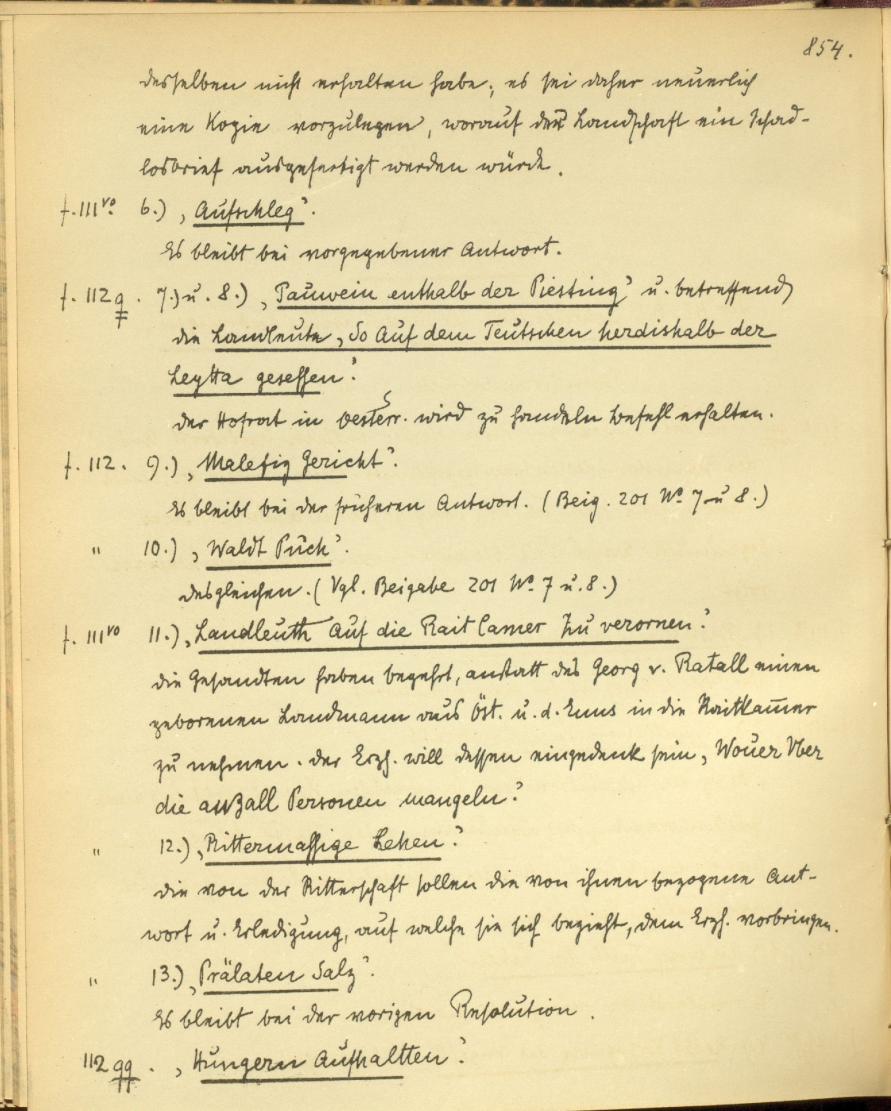 854.
desselben nicht erhalten habe; es sei daher neuerlich
eine Kopie vorzulegen, worauf der Landschaft ein Schad-
losbrief ausgefertigt werden würde.
f. 111vo. 6.) „Aufschleg“.
Es bleibt bei vorgegebener Antwort.
f. 112 q. 7.) u. 8.) „Pauwein enthalb der Piesting“ u. betreffend
die Landleute „So Auf dem Teutschen herdishalb der
Leytta gesessen“.
der Hofrat in Oesterr. wird zu handeln Befehl erhalten.
f. 112. 9.) „Malefiz Gericht“.
Es bleibt bei der früheren Antwort. (Beig. 201 No. 7 u 8.)
" 10.) „Waldt Puch“.
desgleichen. (Vgl. Beigabe 201 No. 7 u. 8.)
f. 111vo 11.) „Landleuth Auf die Rait Camer Zu verornen“.
die Gesandten haben begehrt, anstatt des Georg v. Ratall einen
geborenen Landmann aus Öst. u. d. Enns in die Raitkam̅er
zu nehmen. der Erzh. will dessen eingedenk sein, „Wouer Vber
die anzall Personen mangeln“.
" 12.) „Rittermassige Lehen“.
die von der Ritterschaft sollen die von ihnen bezogene Ant-
wort u. Erledigung, auf welche sie sich bezieht, dem Erzh. vorbringen.
" 13.) „Prälaten Salz“.
Es bleibt bei der vorigen Resolution.
112 qq. „Hungern Aufhaltten“.